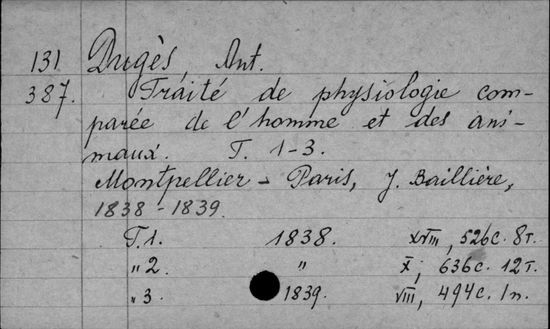 131 Dugès, Ant.
387. Tráité de physiologie com-
parée de l'homme et des ani-
maux. T. 1-3.
Montpellier - Paris, J. Baillière,
1838-1839.
T. 1. 1838. XVIII, 526c. 8T.
" 2. " X, 636c. 12T.
" 3. 1839. VIII, 494c. 1n.